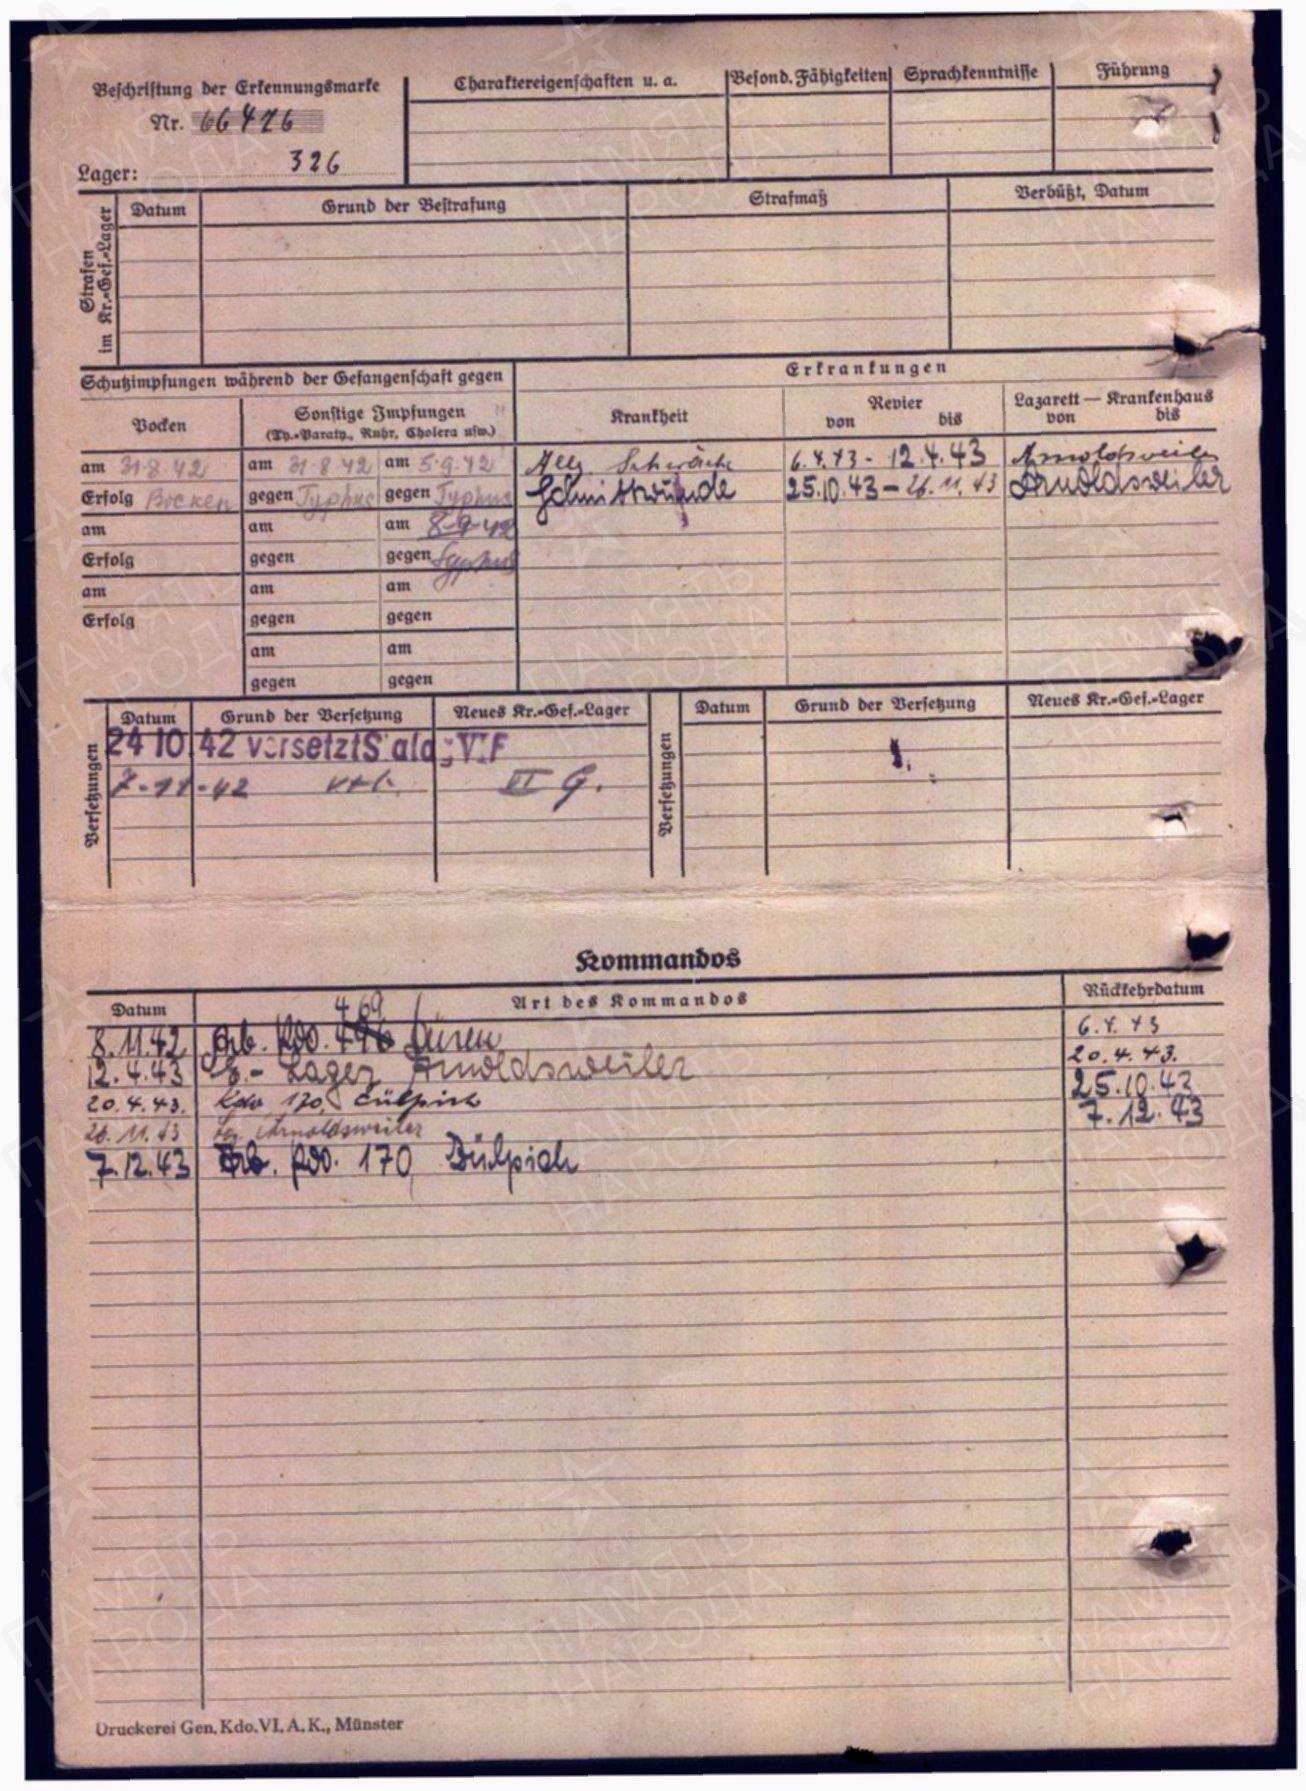 Beschriftung der Erkennungsmarke
Nr. 66426
Lager: 326
Charaktereigenschaften u. a.
Besond. Fähigkeiten
Sprachkenntnisse
Führung
Strafen im Kr.-Gef.-Lager
Datum
Grund der Bestrafung
Strafmaß
Verbüßt, Datum
Schutzimpfungen während der Gefangenschaft gegen
Erkrankungen
Pocken
Sonstige Impfungen
(Ty.-Paraty., Ruhr, Cholera usw.)
Krankheit
Revier
von bis
Lazarett — Krankenhaus
von bis
am 31.8.42 am 31.8.42 am 5.9.42 Allg. Schwäche 6.4.43 - 12.4.43 Arnoldsweiler
Erfolg Pocken gegen Typhus gegen Typhus Schnittwunde 25.10.43 – 26.11.43 Arnoldsweiler
am am am 8.9.42
Erfolg gegen gegen Typhus
am am am
Erfolg gegen gegen
am am
gegen gegen
Versetzungen
Datum Grund der Versetzung Neues Kr.-Gef.-Lager
24 10 42 versetzt Stalag VI F
7.11.42 VI G.
Versetzungen
Datum Grund der Versetzung Neues Kr.-Gef.-Lager
Kommandos
Datum Art des Kommandos Rückkehrdatum
469
8.11.42 Arb. Kdo. 496 Düren 6.4.43
12.4.43 Lager Arnoldsweiler 20.4.43.
20.4.43. Kdo 170, Zülpich 25.10.43
26.11.43 Lg. Arnoldsweiler 7.12.43
7.12.43 Arb. Kdo. 170 Zülpich
Druckerei Gen. Kdo. VI. A. K., Münster
ПАМЯТЬ НАРОДА